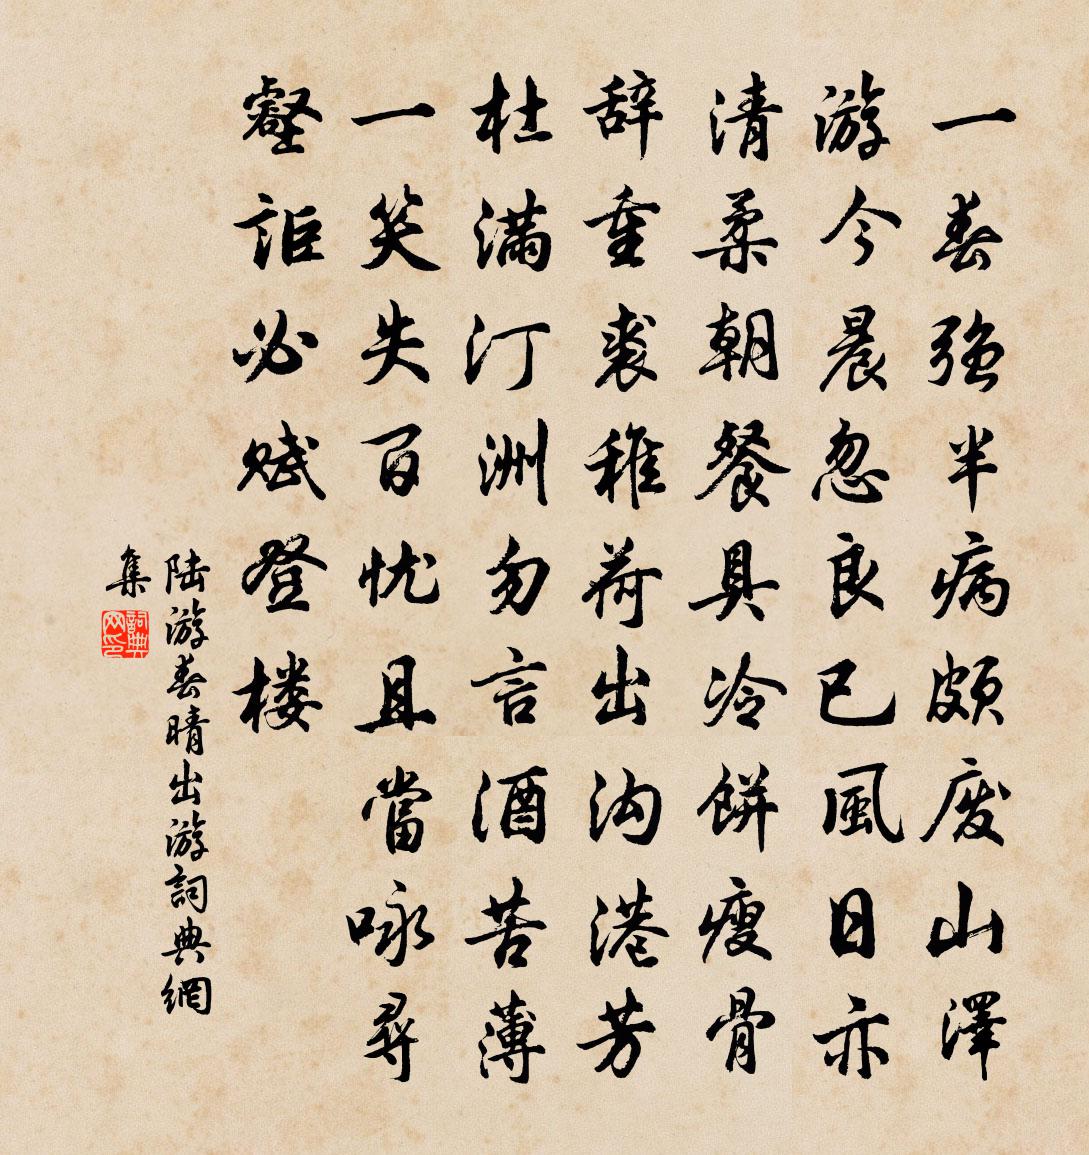 一春強半病頗廢山澤
游今晨忽良已風日亦
清柔朝餐具冷餅瘦骨
辞重裘稚荷出沟港芳
杜滿汀洲勿言酒苦薄
一笑失百忧且當咏尋
壑詎必赋登楼
陆游春晴出游詞典網
集
詞典网印